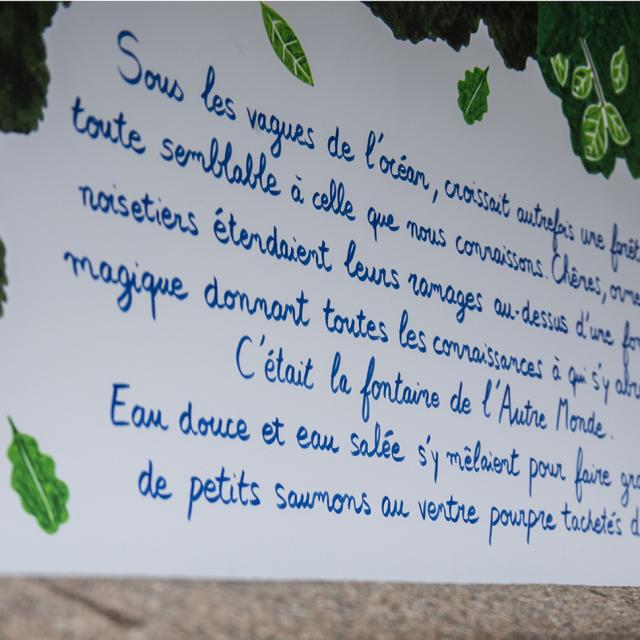 Sous les vagues de l'océan, croissait autrefois une forêt
toute semblable à celle que nous connaissons. Chênes, orme
noisetiers étendaient leurs ramages au-dessus d'une fon
magique donnant toutes les connaissances à qui s'y abre
C'était la fontaine de l'Autre Monde.
Eau douce et eau salée s'y mêlaient pour faire gra
de petits saumons au ventre pourpre tachetés d